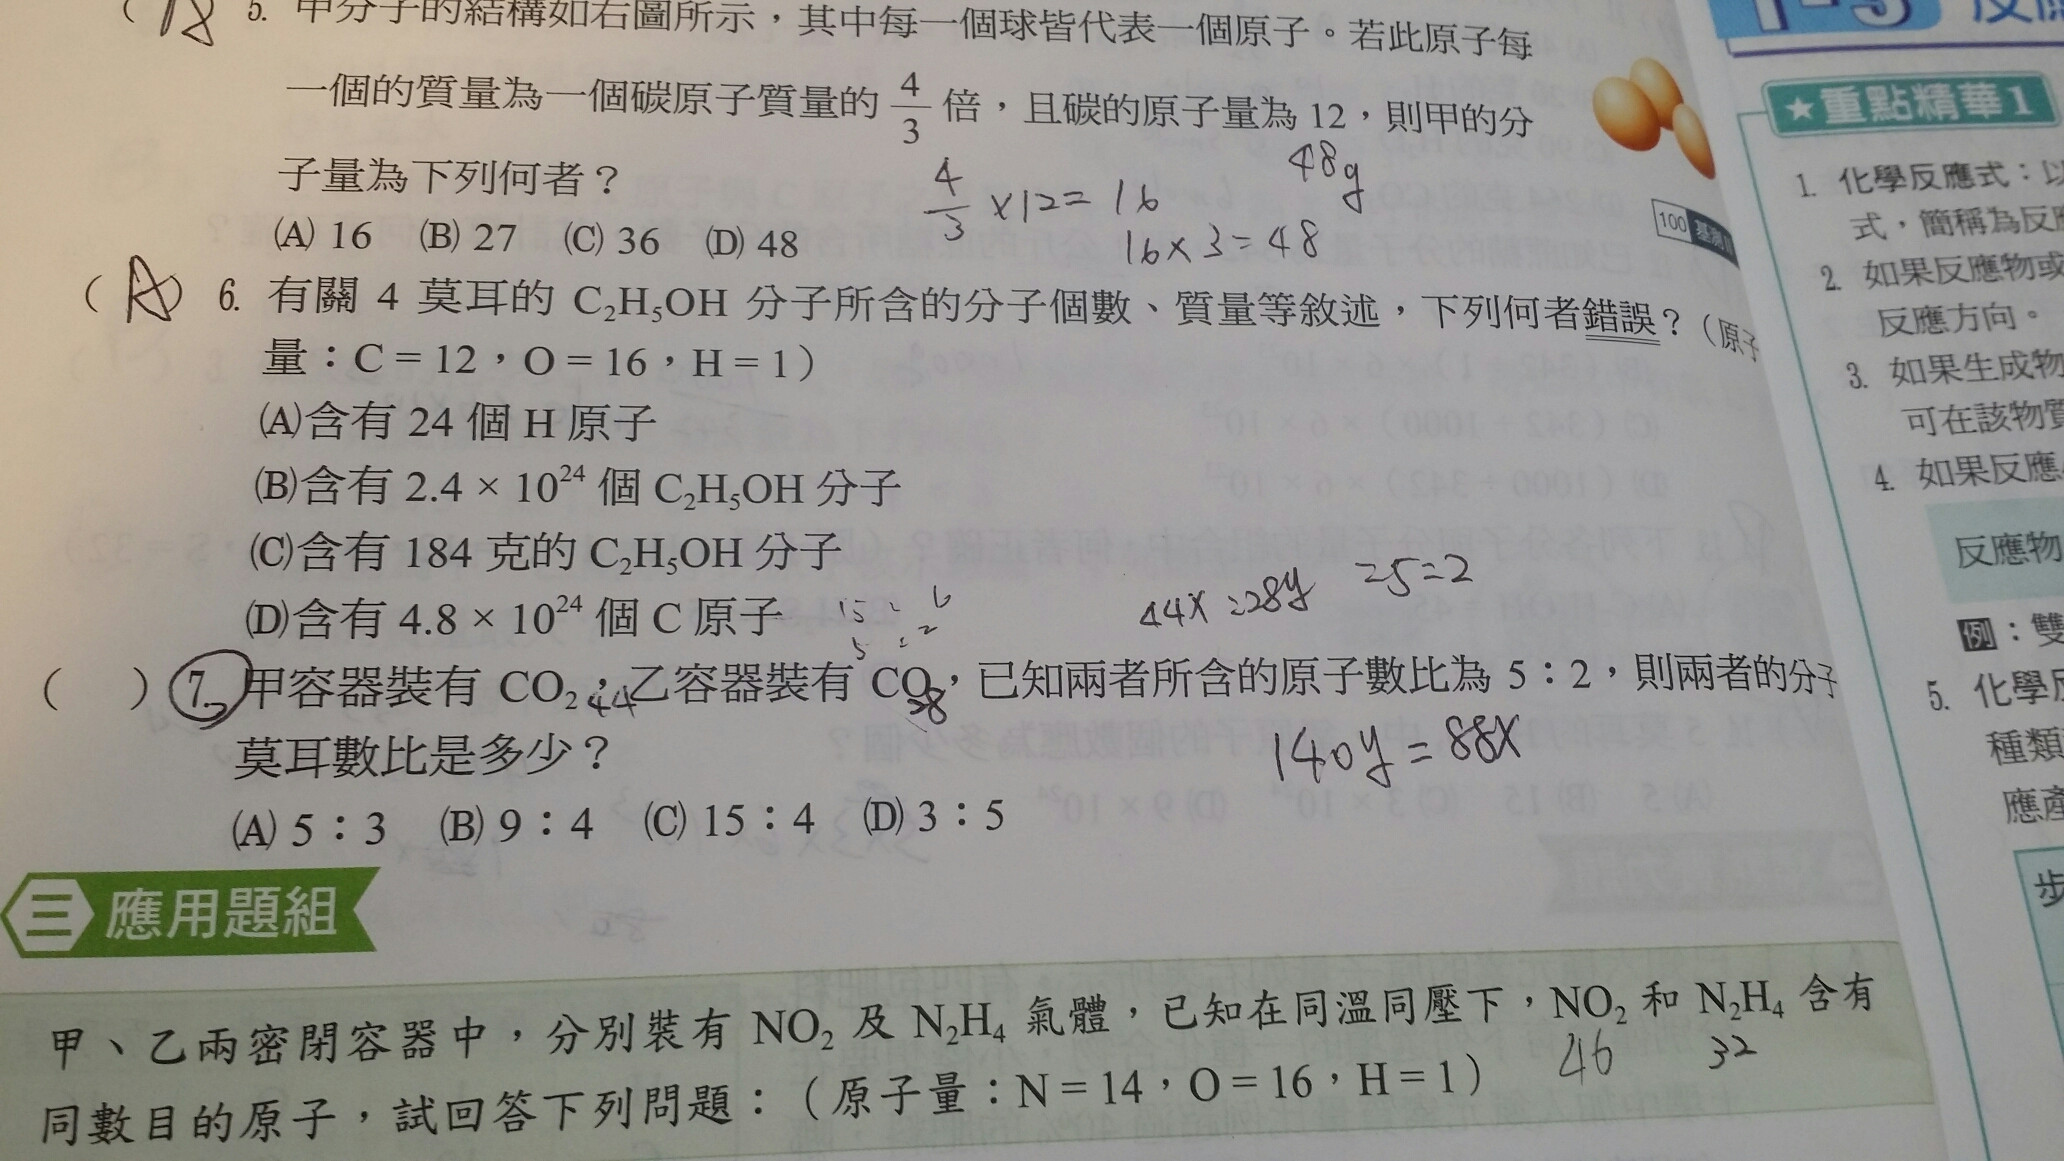 5. 甲分子的結構如右圖所示，其中每一個球皆代表一個原子。若此原子每
一個的質量為一個碳原子質量的 4/3 倍，且碳的原子量為 12，則甲的分
子量為下列何者？
48g
4/3 ×12=16
16×3=48
(A) 16 (B) 27 (C) 36 (D) 48
100
(A) 6. 有關 4 莫耳的 C₂H₅OH 分子所含的分子個數、質量等敘述，下列何者錯誤？（原子
量：C = 12，O = 16，H = 1）
(A)含有 24 個 H 原子
(B)含有 2.4 × 10²⁴ 個 C₂H₅OH 分子
(C)含有 184 克的 C₂H₅OH 分子
(D)含有 4.8 × 10²⁴ 個 C 原子
15 : 6
5 : 2
44x:28y =5=2
( ) 7. 甲容器裝有 CO₂，乙容器裝有 CO，已知兩者所含的原子數比為 5：2，則兩者的分子
44
28
莫耳數比是多少？
140y=88x
(A) 5：3 (B) 9：4 (C) 15：4 (D) 3：5
三 應用題組
甲、乙兩密閉容器中，分別裝有 NO₂ 及 N₂H₄ 氣體，已知在同溫同壓下，NO₂ 和 N₂H₄ 含有
46 32
同數目的原子，試回答下列問題：（原子量：N = 14，O = 16，H = 1）
1-3 反應
★重點精華1
1. 化學反應式：以
式，簡稱為反應
2. 如果反應物或
反應方向。
3. 如果生成物
可在該物質
4. 如果反應
反應物
例：雙
5. 化學反
種類
應產
步